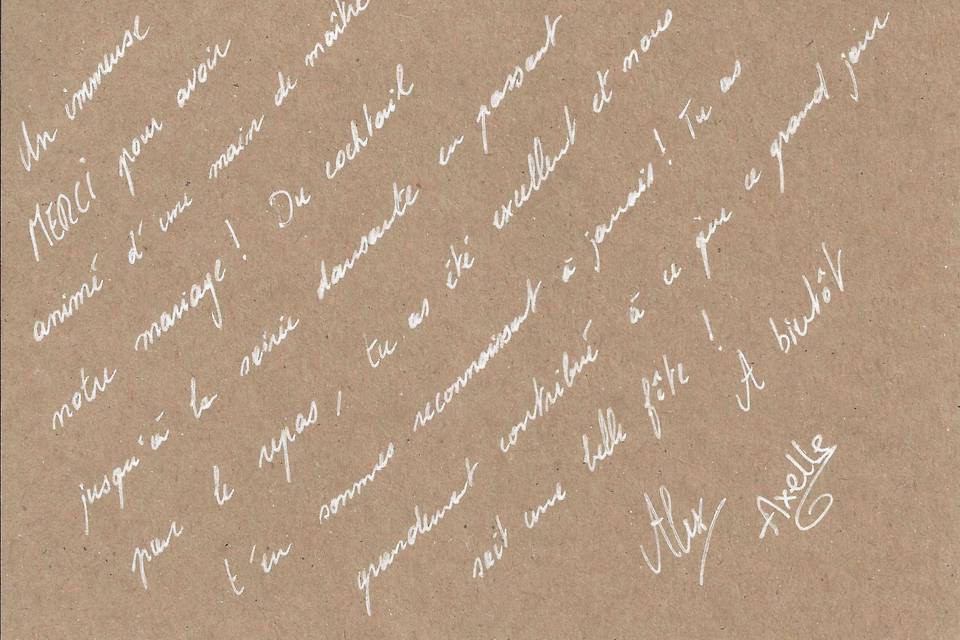 Un immense
MERCI pour avoir
animé d'une main de maître
notre mariage ! Du cocktail
jusqu'à la soirée dansante en passant
par le repas, tu as été excellent et nous
t'en sommes reconnaissant à jamais ! Tu as
grandement contribué à ce que ce grand jour
soit une belle fête ! A bientôt
Alex Axelle